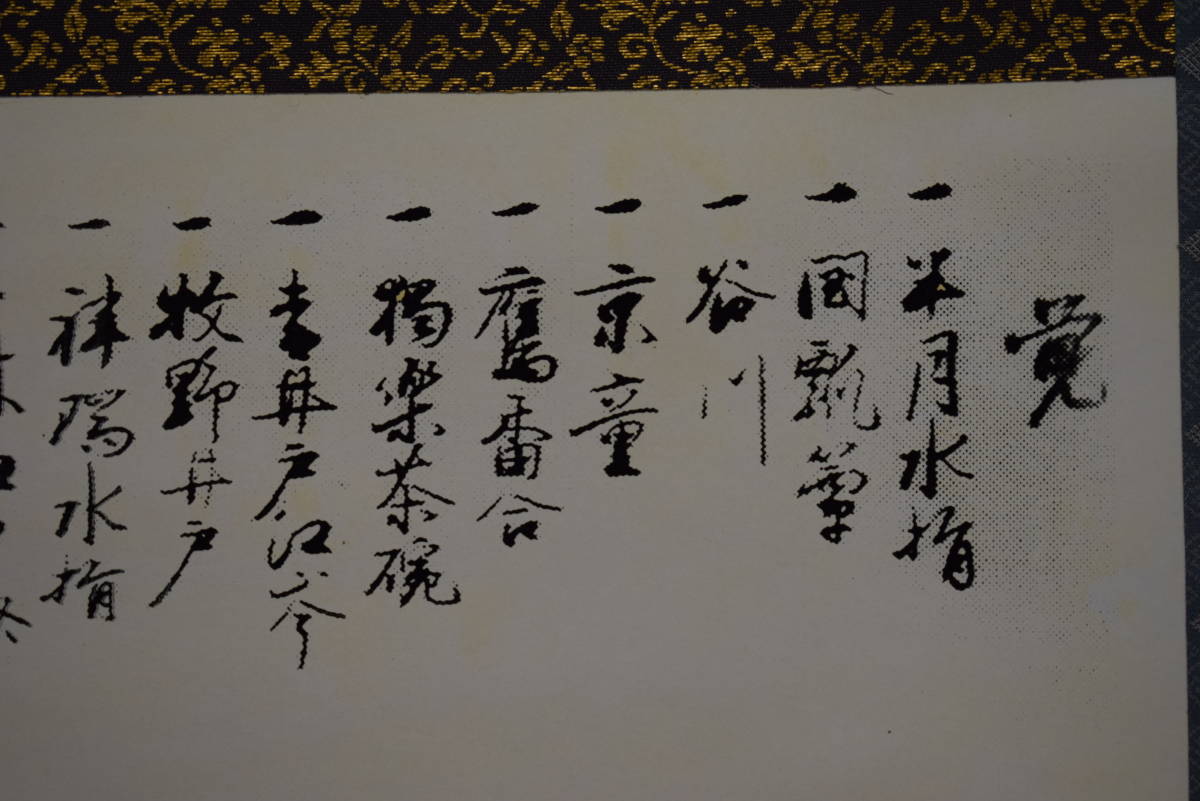 覚
一 半月水指
一 国瓢箪
一 谷川
一 京童
一 舊番合
一 獨樂茶碗
一 青井戸江岑
一 牧野井戸
一 禅瑞水指